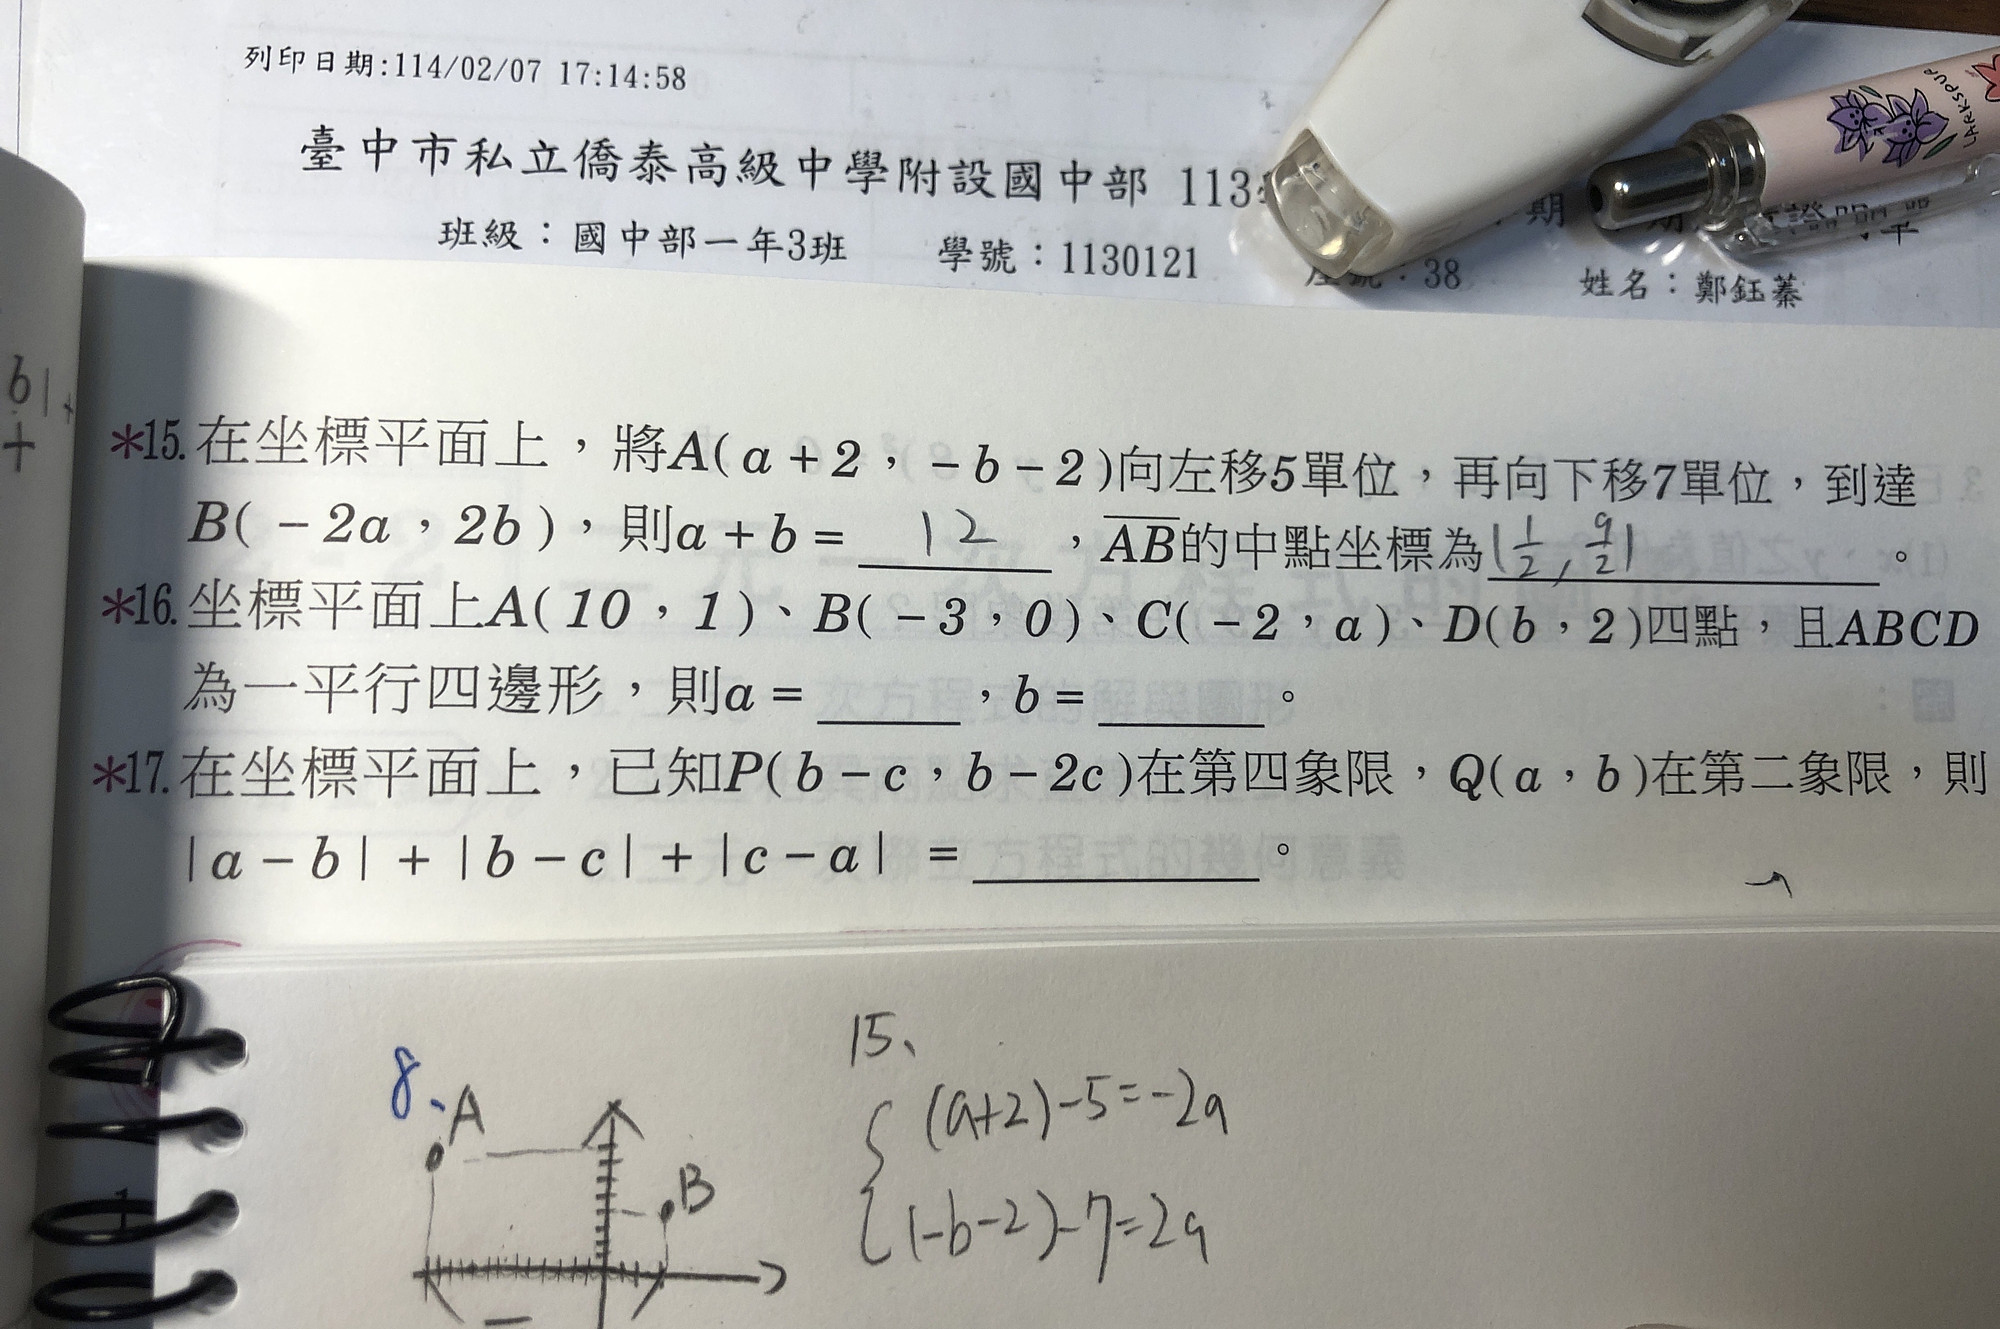 列印日期:114/02/07 17:14:58
臺中市私立僑泰高級中學附設國中部 113 期
班級：國中部一年3班 學號：1130121 座號：38 姓名：鄭鈺蓁
LARKSPUR
b| +
+
*15.在坐標平面上，將A(a+2，-b-2)向左移5單位，再向下移7單位，到達
B(-2a，2b)，則a+b= 12 ，AB的中點坐標為(1/2, 9/2)。
*16.坐標平面上A(10，1)、B(-3，0)、C(-2，a)、D(b，2)四點，且ABCD
為一平行四邊形，則a=____，b=____。
*17.在坐標平面上，已知P(b-c，b-2c)在第四象限，Q(a，b)在第二象限，則
|a-b|+|b-c|+|c-a|=____。
8、A
B
15、
(a+2)-5=-2a
(-b-2)-7=2a